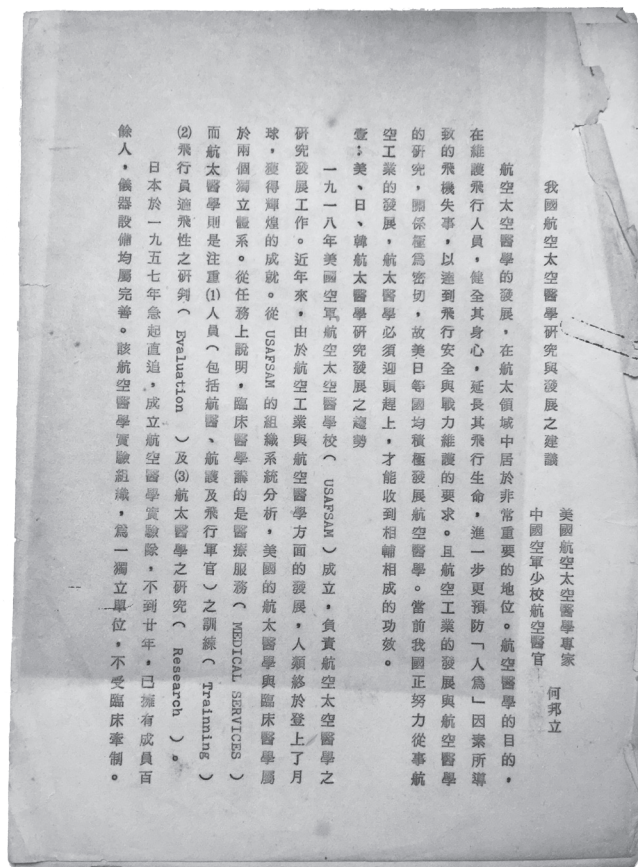 我國航空太空醫學研究與發展之建議
美國航空太空醫學專家
中國空軍少校航空醫官
何邦立
航空太空醫學的發展，在航太領域中居於非常重要的地位。航空醫學的目的，
在維護飛行人員，健全其身心，延長其飛行生命，進一步更預防「人為」因素所導
致的飛機失事，以達到飛行安全與戰力維護的要求。且航空工業的發展與航空醫學
的研究，關係極為密切，故美日等國均積極發展航空醫學。當前我國正努力從事航
空工業的發展，航太醫學必須迎頭趕上，才能收到相輔相成的功效。
壹：美、日、韓航太醫學研究發展之趨勢
一九一八年美國空軍航空太空醫學校（ USAFSAM ）成立，負責航空太空醫學之
研究發展工作。近年來，由於航空工業與航空醫學方面的發展，人類終於登上了月
球，獲得輝煌的成就。從 USAFSAM 的組織系統分析，美國的航太醫學與臨床醫學屬
於兩個獨立體系。從任務上說明，臨床醫學講的是醫療服務（ MEDICAL SERVICES ）
而航太醫學則是注重⑴人員（包括航醫、航護及飛行軍官）之訓練（ Trainning ）
⑵飛行員適飛性之研判（ Evaluation ）及⑶航太醫學之研究（ Research ）。
日本於一九五七年急起直追，成立航空醫學實驗隊，不到廿年，已擁有成員百
餘人，儀器設備均屬完善。該航空醫學實驗組織，為一獨立單位，不受臨床牽制。